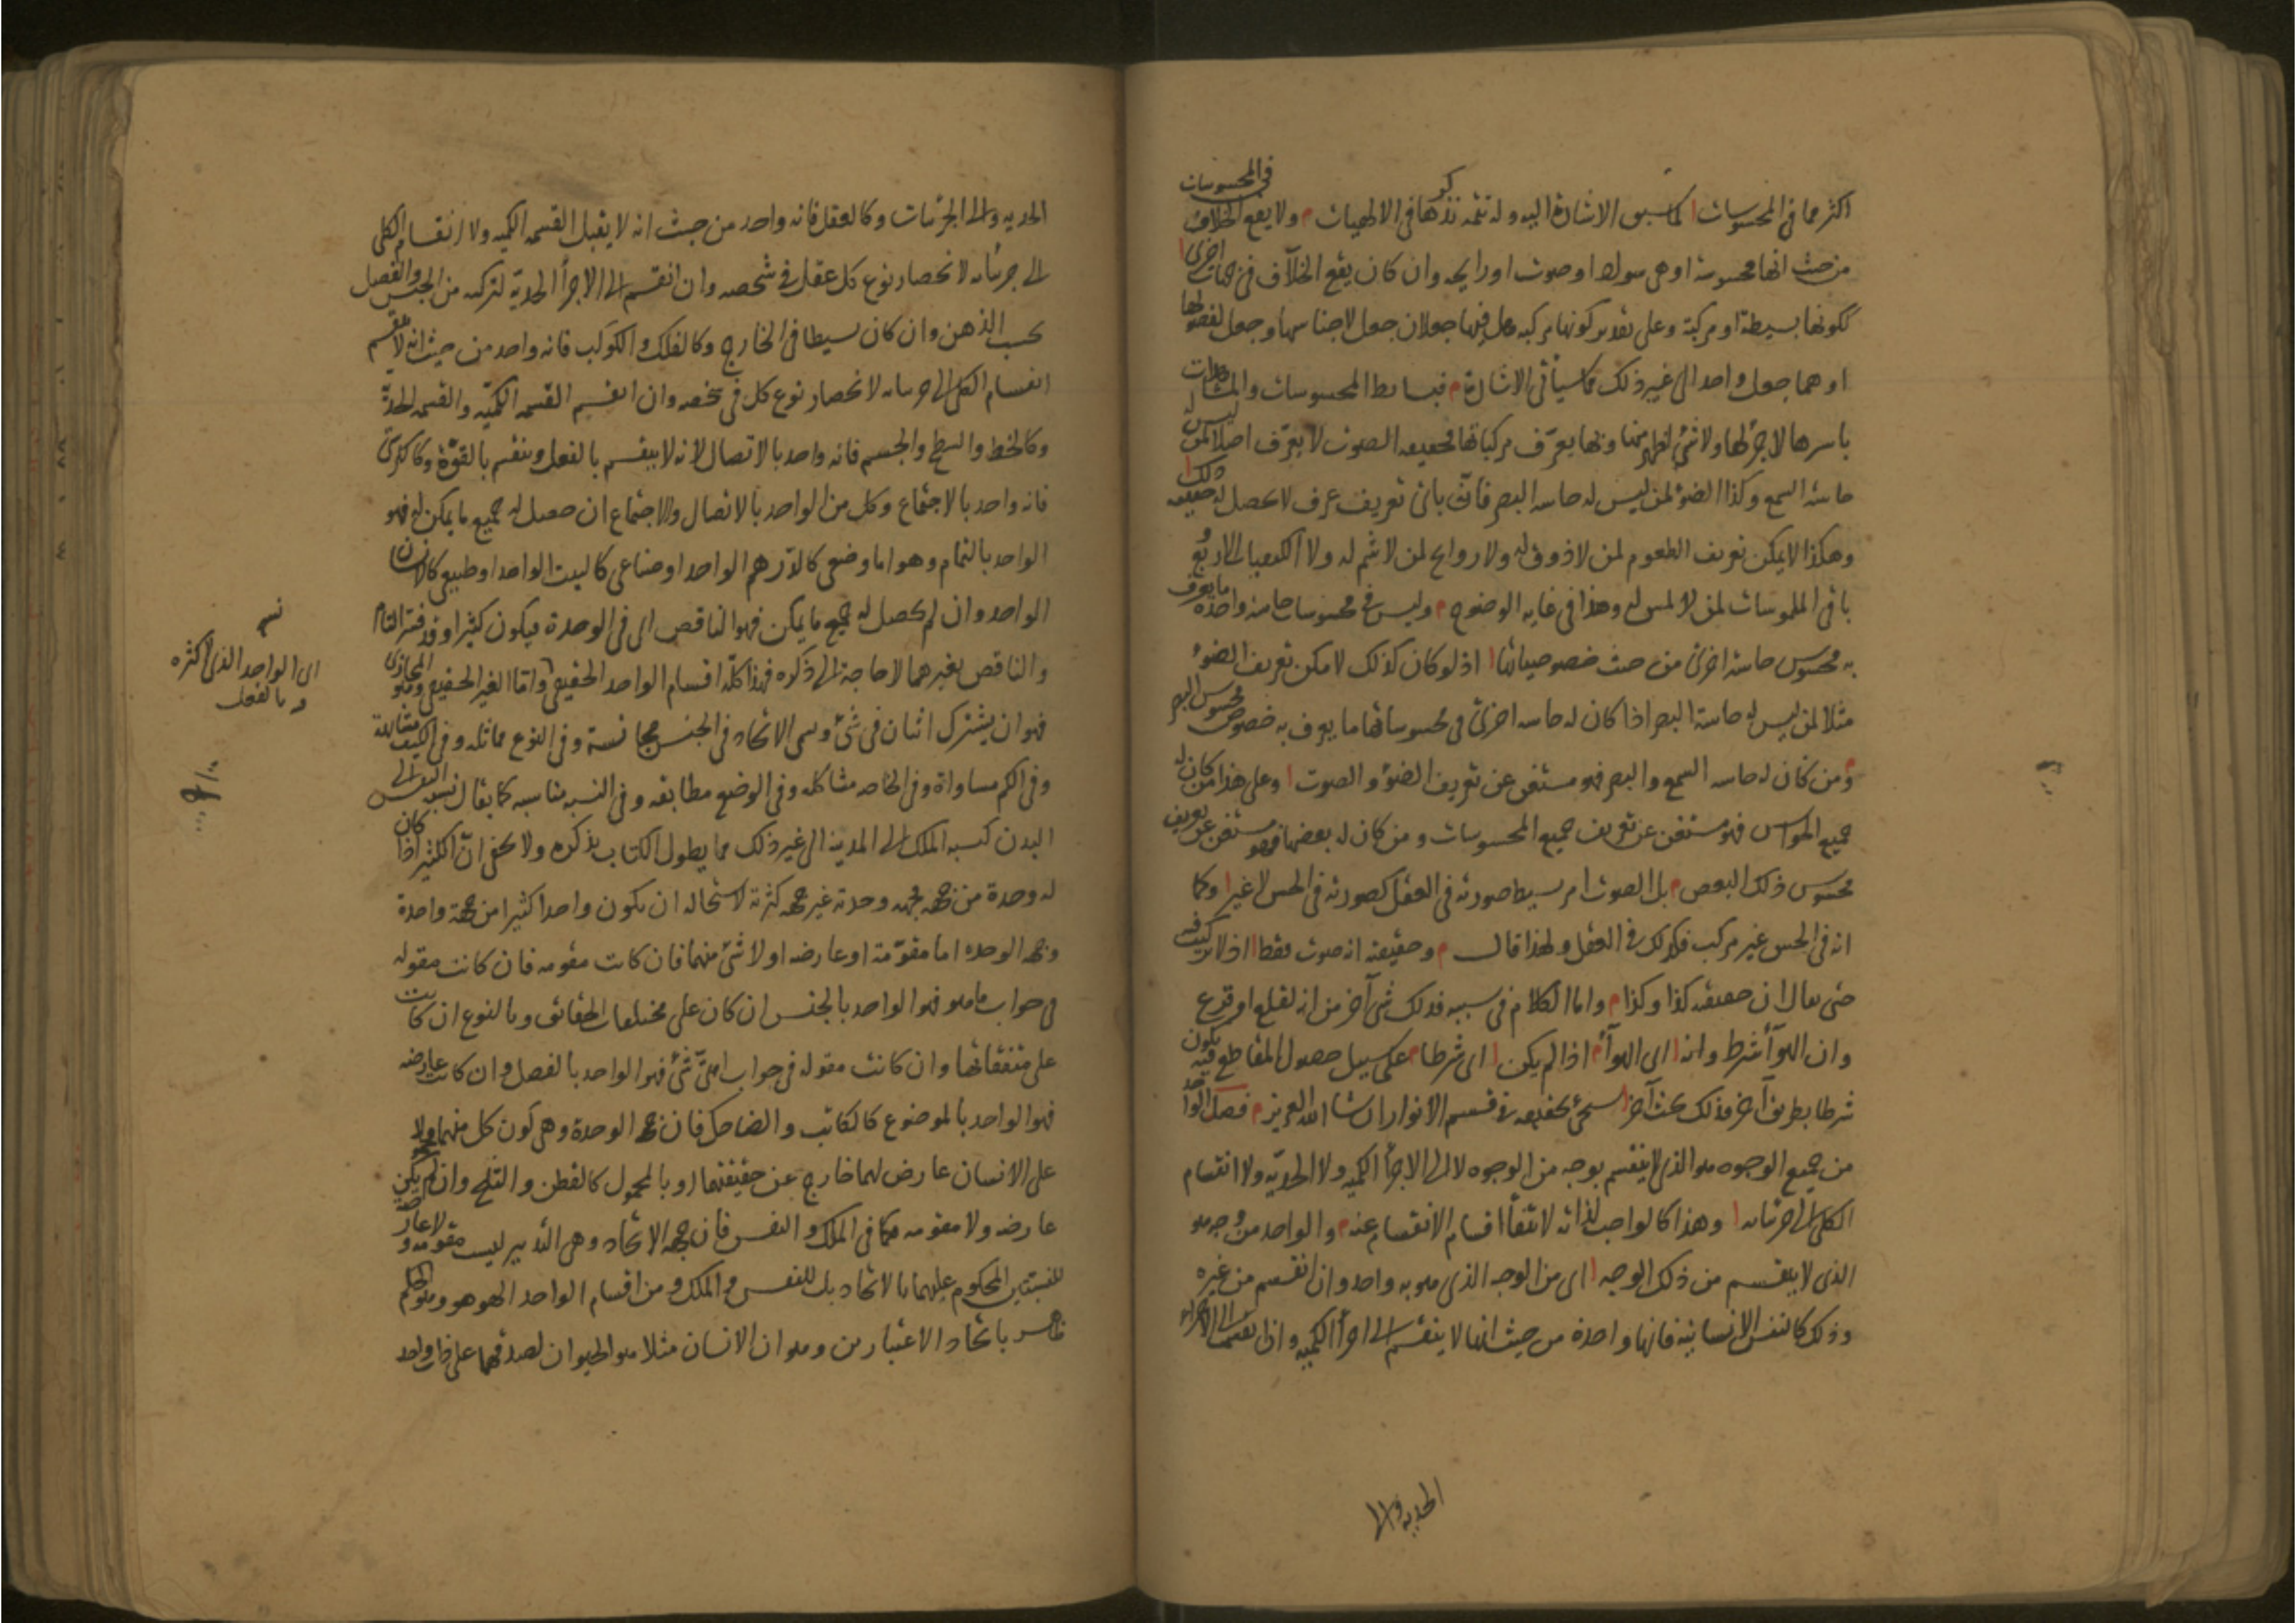 اكثر مما في المحسوسات كما سبق الاشارة اليه وله تتمه نذكرها في الالهيات م ولا يقع الخلاف في المحسوسات
من حيث انها محسوسة او هي سواد او صوت او رايحه وان كان يقع الخلاف في جهات اخرى
ككونها بسيطة او مركبة وعلى تقدير كونها مركبه هل فيها جعلان جعل لاجناسها وجعل لفصولها
او هما جعل واحد الى غير ذلك كما سيأتى الاشارة م فبسايط المحسوسات والمشاهدات
باسرها لاجزء لها ولا شئ اظهر منها وبها يعرّف مركباتها فحقيقه الصوت لا يعرّف اصلا لمن ليس له
حاسة السمع وكذا الضوء لمن ليس له حاسه البصر فانه باى تعريف عرف لا يحصل له حقيقه ذلك
وهكذا لا يمكن تعريف الطعوم لمن لا ذوق له ولا روايح لمن لا شم له ولا الكيفيات الاربع و
باقى الملموسات لمن لا لمس له وهذا فى غايه الوضوح م وليس فى محسوسات حاسة واحدة ما يعرف
به محسوس حاسة اخرى من حيث خصوصياتها ا اذ لو كان كذلك لامكن تعريف الضوء
مثلا لمن ليس له حاسة البصر اذا كان له حاسه اخرى فى محسوساتها ما يعرف به خصوص محسوس البصر
م ومن كان له حاسه السمع والبصر فهو مستغن عن تعريف الضوء والصوت ا وعلى هذا من كان له
جميع الحواس فهو مستغن عن تعريف جميع المحسوسات ومن كان له بعضها فهو مستغن عن تعريف
محسوس ذلك البعض م بل الصوت امر بسيط صورته فى العقل كصورته فى الحس لا غير ا وكما
انه فى الحس غير مركب فكذلك فى العقل ولهذا قال م وحقيقته انه صوت فقط ا اذ لا تركيب فيه
حتى يقال ان حقيقته كذا وكذا م واما الكلام فى سببه فذلك شئ آخر من انه لقلع او قرع
وان الهوآء شرط وانه ا اى الهوآء م اذا لم يكن ا اى شرطا م على سبيل حصول المقاطع فيه يكون
شرطا بطريق آخر فذلك بحث آخر ا سيجئ تحقيقه فى قسم الانوار ان شا الله العزيز م فصل الواحد
من جميع الوجوه هو الذى لا ينقسم بوجه من الوجوه لا الى الاجزأ الكميه ولا الحديّه ولا انقسام
الكلى الى جزئياته ا وهذا كالواجب لذاته لانتفأ اقسام الانقسام عنه م والواحد من وجه هو
الذى لا ينقسم من ذلك الوجه ا اى من الوجه الذى هو به واحد وان انقسم من غيره
وذلك كالنفس الانسانيه فانها واحدة من حيث انها لا ينقسم الى اجزأ الكميه وان انقسمت الى الاجزاء
الحديه والى
الحديه والى الجزئيات وكالعقل فانه واحد من حيث انه لا يقبل القسمه الكميه ولا انقسام الكلى
الى جزئياته لانحصار نوع كل عقل فى شخصه وان انقسم الى الاجزأ الحديّة لتركبه من الجنس والفصل
بحسب الذهن وان كان بسيطا فى الخارج وكالفلك والكوكب فانه واحد من حيث انه لا ينقسم
انقسام الكلى الى جزئياته لانحصار نوع كل فى شخصه وان انقسم القسمه الكميّه والقسمه الحديّة
وكالخط والسطح والجسم فانه واحد بالاتصال لانه لا ينقسم بالفعل وينقسم بالقوّة وكالكرسى
فانه واحد بالاجتماع وكل من الواحد بالاتصال والاجتماع ان حصل له جميع ما يمكن له فهو
الواحد بالتمام وهو اما وضعى كالدّرهم الواحد او صناعى كالبيت الواحد او طبيعى كالانسان
الواحد وان لم يحصل له جميع ما يمكن فهو الناقص اى فى الوحدة فيكون كثيرا وقد فسّر التام
والناقص بغيرهما لا حاجة الى ذكره فهذا كلّه اقسام الواحد الحقيقى واما الغير الحقيقى وهو المجازى
فهو ان يشترك اثنان فى شئ ويسمى الاتحاد فى الجنس مجانسة وفى النوع مماثله وفى الكيف مشابهة
وفى الكم مساواة وفى الخاصه مشاكله وفى الوضع مطابقه وفى النسبه مناسبه كما يقال نسبه النفس الى
البدن كنسبه الملك الى المدينه الى غير ذلك مما يطول الكتاب بذكره ولا يخفى انّ الكثير اذا كان
له وحدة من جهه فجهه وحدته غير جهه كثرته لاستحاله ان يكون واحدا كثيرا من جهة واحدة
وجهه الوحده اما مقوّمة او عارضه او لا شئ منهما فان كانت مقومه فان كانت مقوله
فى جواب ما هو فهو الواحد بالجنس ان كان على مختلفات الحقائق وبالنوع ان كانت
على متفقاتها وان كانت مقوله فى جواب اىّ شئ فهو الواحد بالفصل وان كانت عارضه
فهو الواحد بالموضوع كالكاتب والضاحك فان جهه الوحدة وهى كون كل منهما محمولا
على الانسان عارض لهما خارج عن حقيقتهما او بالمحمول كالقطن والثلج وان لم يكن
عارضه ولا مقومه كما فى الملك والنفس فان جهه الاتحاد وهى التدبير ليست مقومه ولا عارضة
للنسبتين المحكوم عليهما بالاتحاد بل للنفس والملك ومن اقسام الواحد الهو هو وهو الحكم
باتحاد الاعتبارين وهو ان الانسان مثلا هو الحيوان لصدقهما على ذات واحد
اى الواحد الذى لا كثره
بالفعل